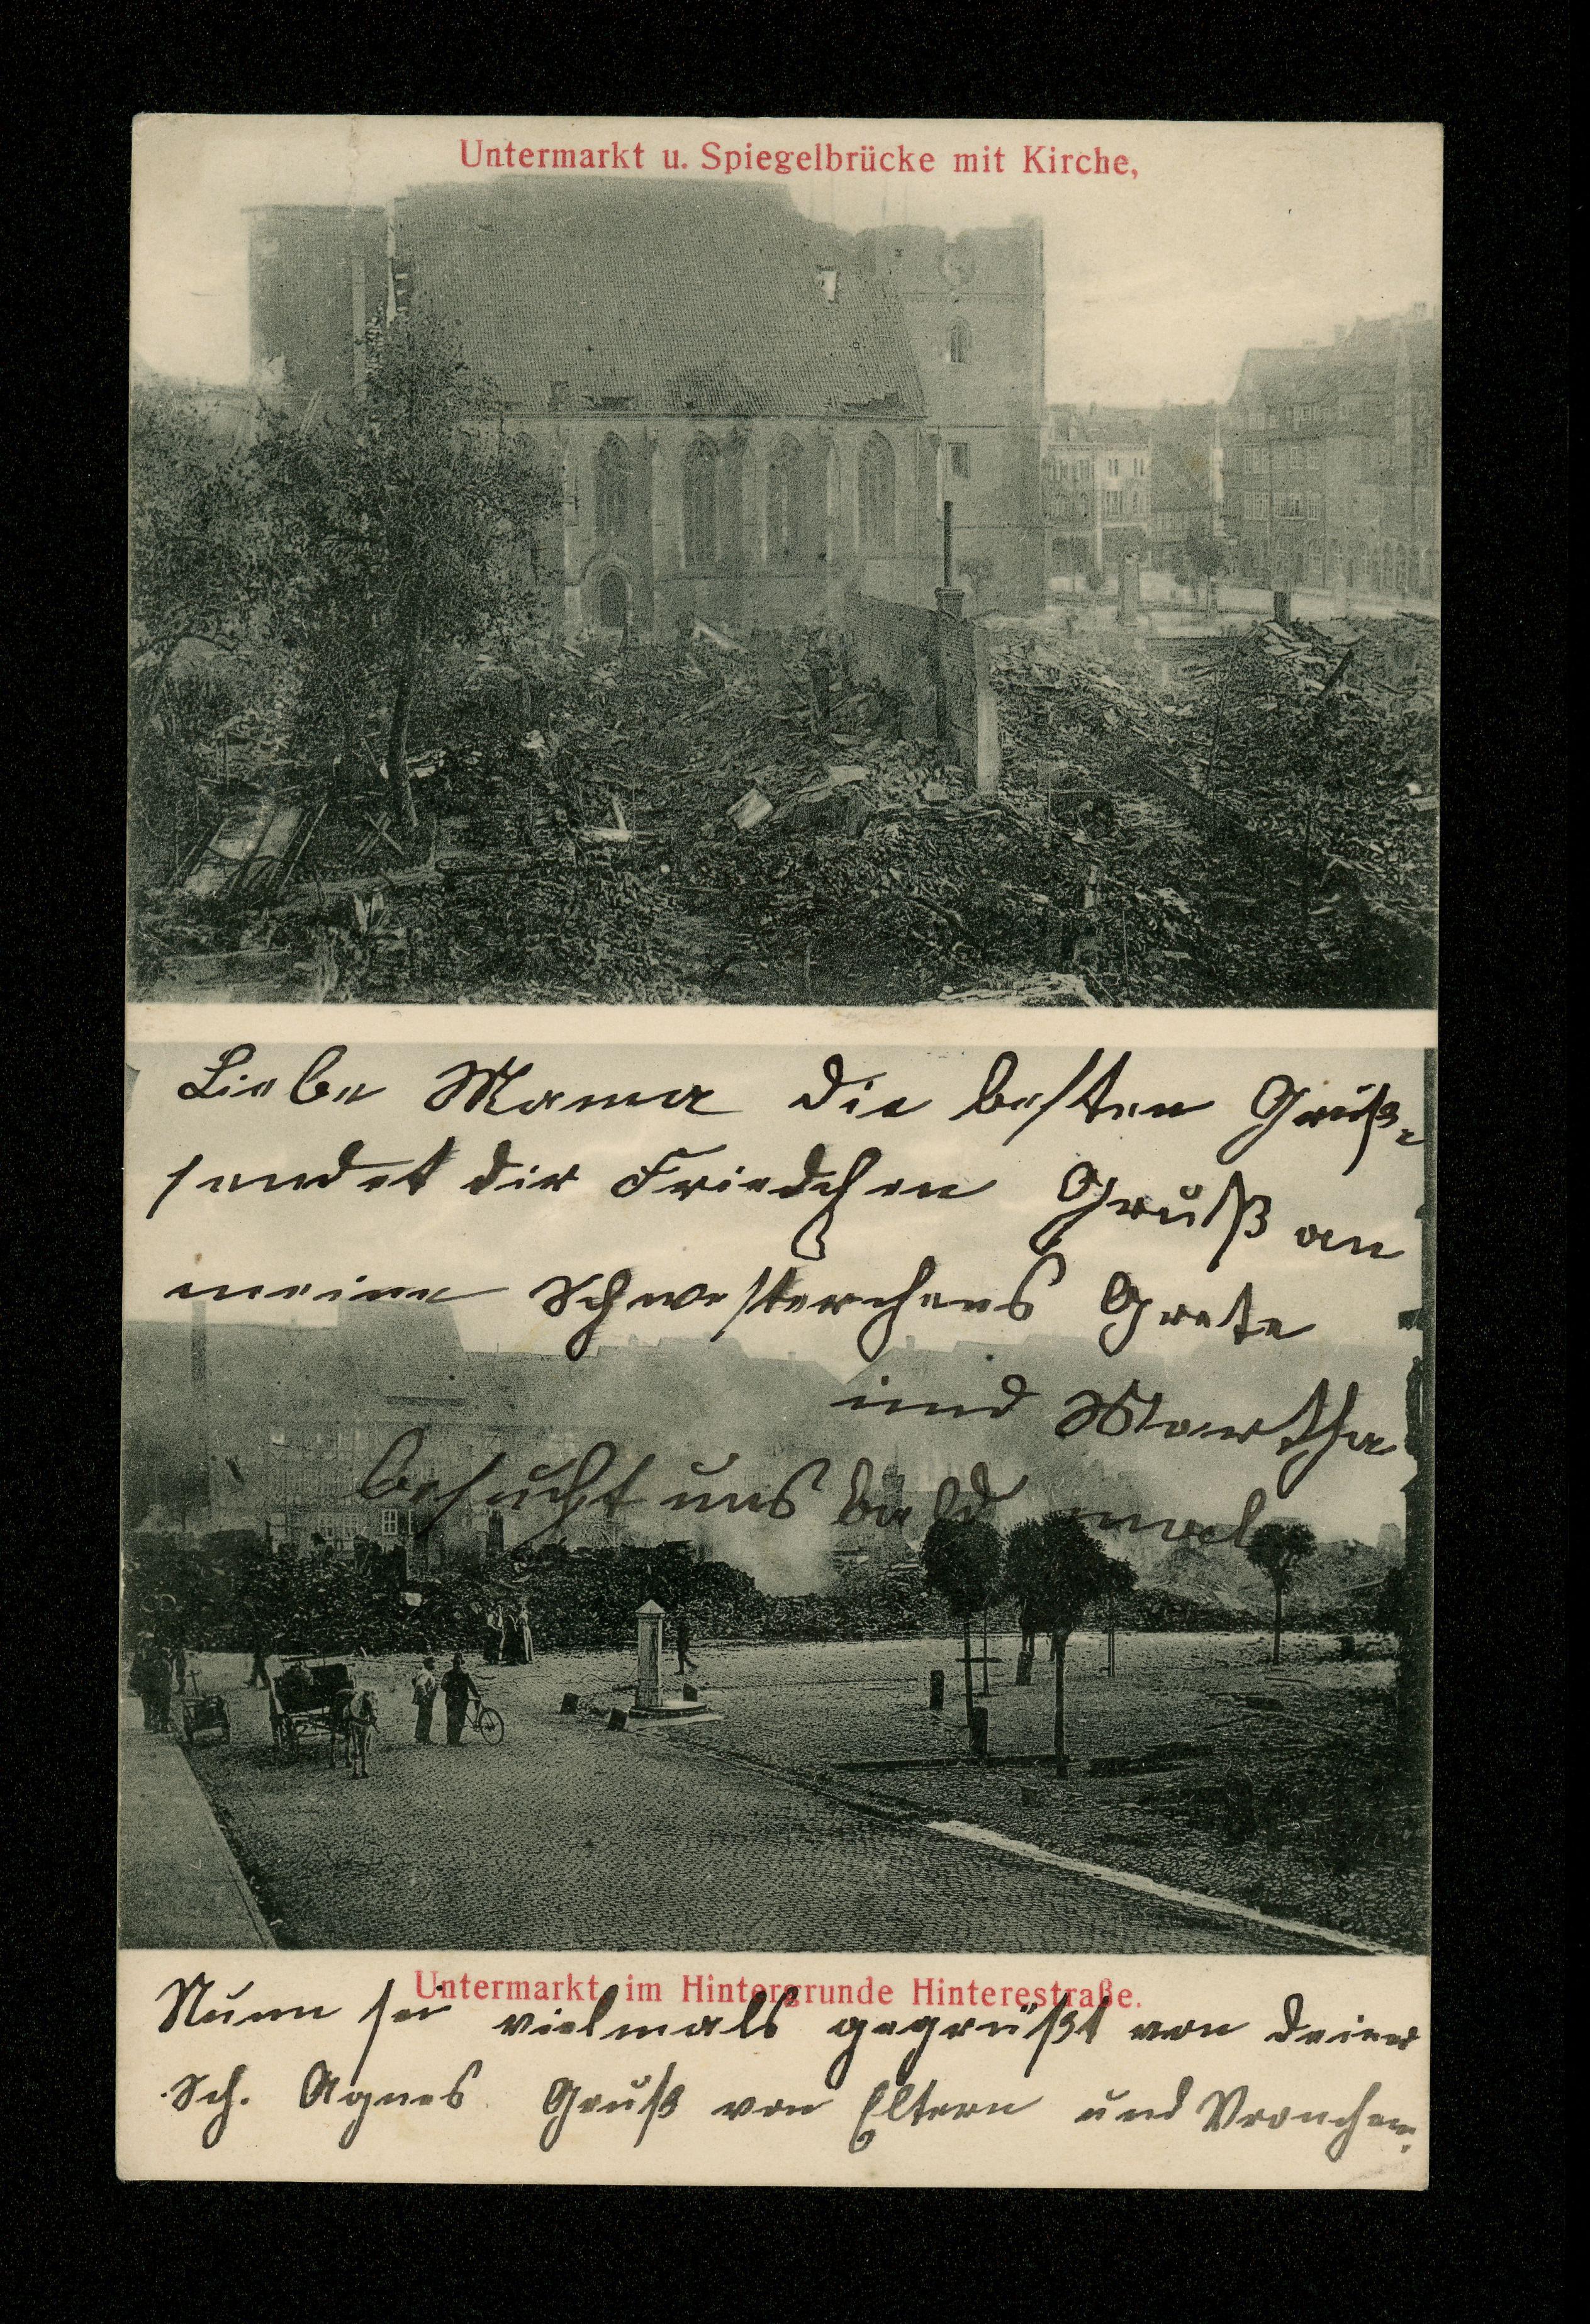 Untermarkt u. Spiegelbrücke mit Kirche,
Liebe Mama die besten Grüße
sendet dir Friedchen Gruß an
meine Schwesterchens Grete
und Martha
besucht uns bald mal
Untermarkt, im Hintergrunde Hinterestraße.
Nunn sei vielmals gegrüßt von deiner
Sch. Agnes Gruß von Eltern und Vronchen.